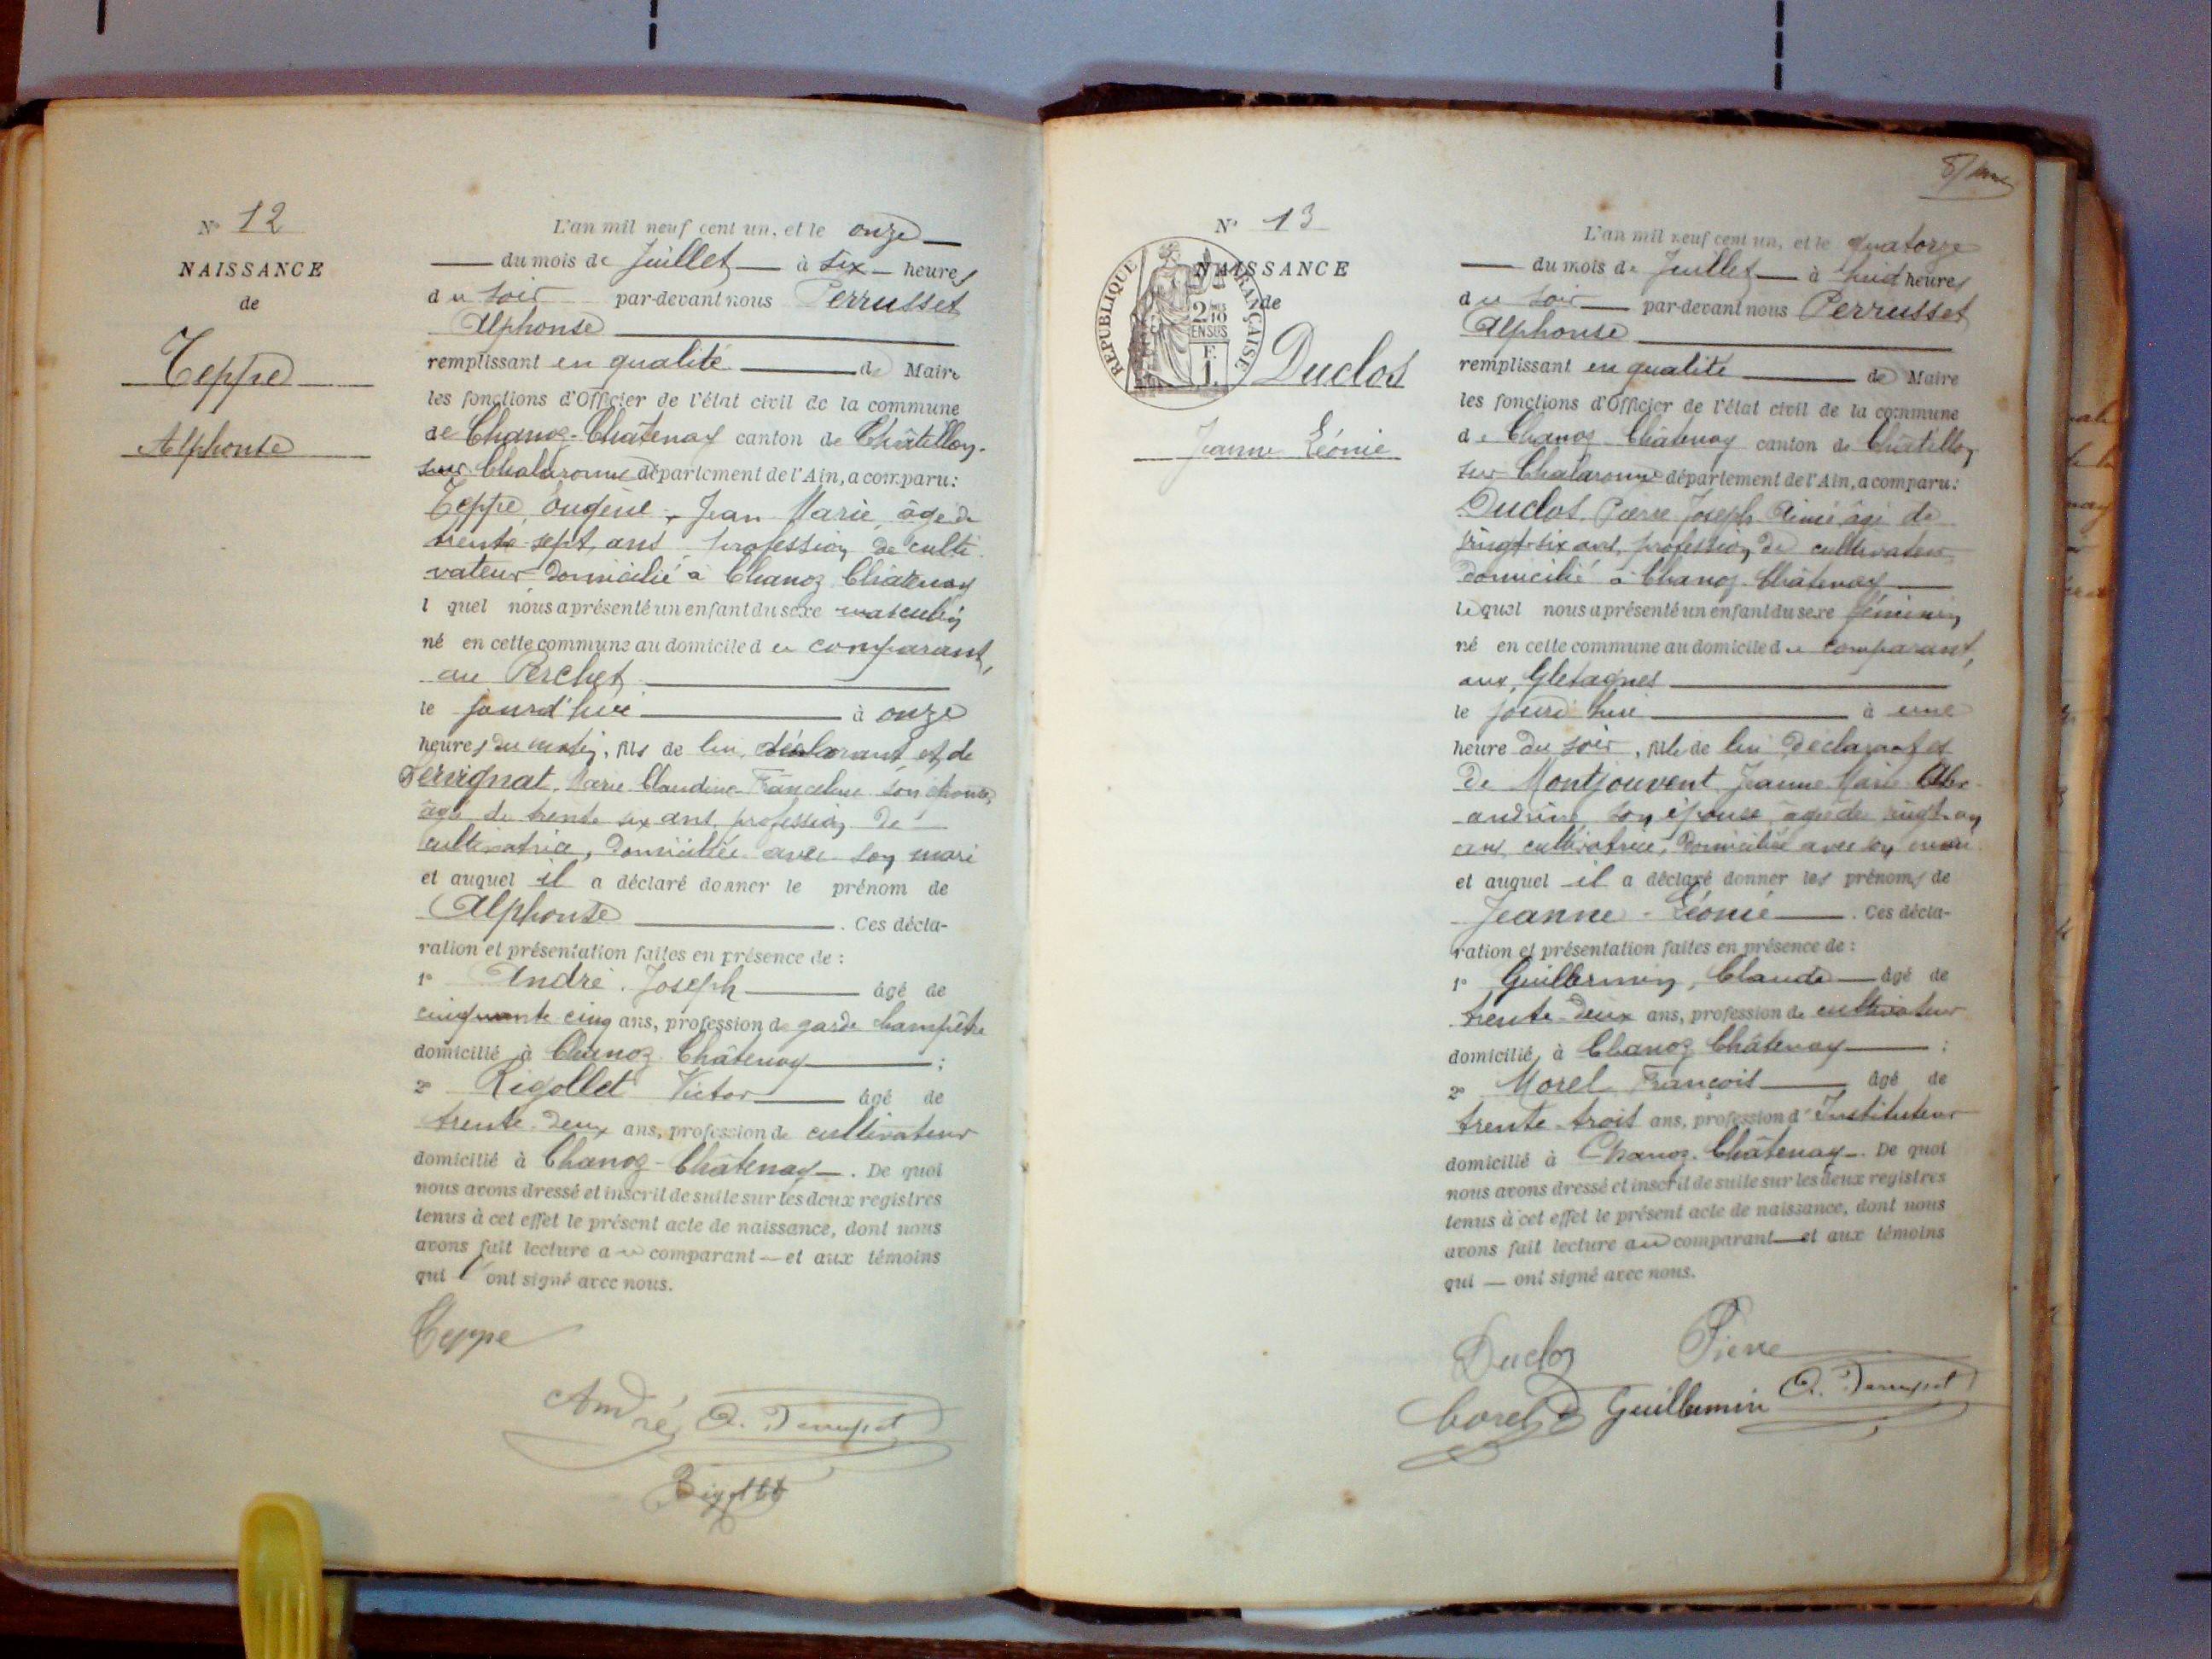 N° 12
NAISSANCE
de
Teppe
Alphonse
L'an mil neuf cent un, et le onze
du mois de Juillet à six heures
du soir par-devant nous Perrusset
Alphonse
remplissant en qualité de Maire
les fonctions d'Officier de l'état civil de la commune
de Chanoz-Châtenay canton de Châtillon-
sur Chalaronne département de l'Ain, a comparu:
Teppe, Eugène, Jean Marie, âgé de
trente-sept ans, profession de culti-
vateur domicilié à Chanoz Châtenay
l quel nous a présenté un enfant du sexe masculin
né en cette commune au domicile du comparant,
au Perchet
le jourd'hui à onze
heures du matin, fils de lui déclarant, et de
Servignat, Marie Claudine Franceline son épouse,
âgée de trente six ans, profession de
cultivatrice, domiciliée avec son mari
et auquel il a déclaré donner le prénom de
Alphonse . Ces décla-
ration et présentation faites en présence de :
1° André, Joseph âgé de
cinquante cinq ans, profession de garde champêtre
domicilié à Chanoz Châtenay ;
2° Rigollet Victor âgé de
trente-deux ans, profession de cultivateur
domicilié à Chanoz-Châtenay. De quoi
nous avons dressé et inscrit de suite sur les deux registres
tenus à cet effet le présent acte de naissance, dont nous
avons fait lecture au comparant et aux témoins
qui ont signé avec nous.
Teppe
André
Rigollet
N° 13
NAISSANCE
de
REPUBLIQUE FRANÇAISE
2/10
EN SUS
F.
1.
Duclos
Jeanne Léonie
L'an mil neuf cent un, et le quatorze
du mois de Juillet à huit heures
du soir par-devant nous Perrusset
Alphonse
remplissant en qualité de Maire
les fonctions d'Officier de l'état civil de la commune
de Chanoz Châtenay canton de Châtillon
sur Chalaronne département de l'Ain, a comparu:
Duclos Pierre Joseph Aimé âgé de
vingt-six ans, profession de cultivateur
domicilié à Chanoz-Châtenay
lequel nous a présenté un enfant du sexe féminin
né en cette commune au domicile du comparant,
aux Gletagnes
le jourd'hui à une
heure du soir, fille de lui déclarant et
de Montjouvent Jeanne Marie Alex-
andrine son épouse, âgée de vingt-un
ans, cultivatrice, domiciliée avec son mari
et auquel il a déclaré donner les prénoms de
Jeanne-Léonie . Ces décla-
ration et présentation faites en présence de :
1° Guillermin, Claude âgé de
trente-deux ans, profession de cultivateur
domicilié à Chanoz Châtenay ;
2° Morel François âgé de
trente-trois ans, profession d'Instituteur
domicilié à Chanoz-Châtenay. De quoi
nous avons dressé et inscrit de suite sur les deux registres
tenus à cet effet le présent acte de naissance, dont nous
avons fait lecture au comparant et aux témoins
qui ont signé avec nous.
Ducloz Pierre
Guillermin